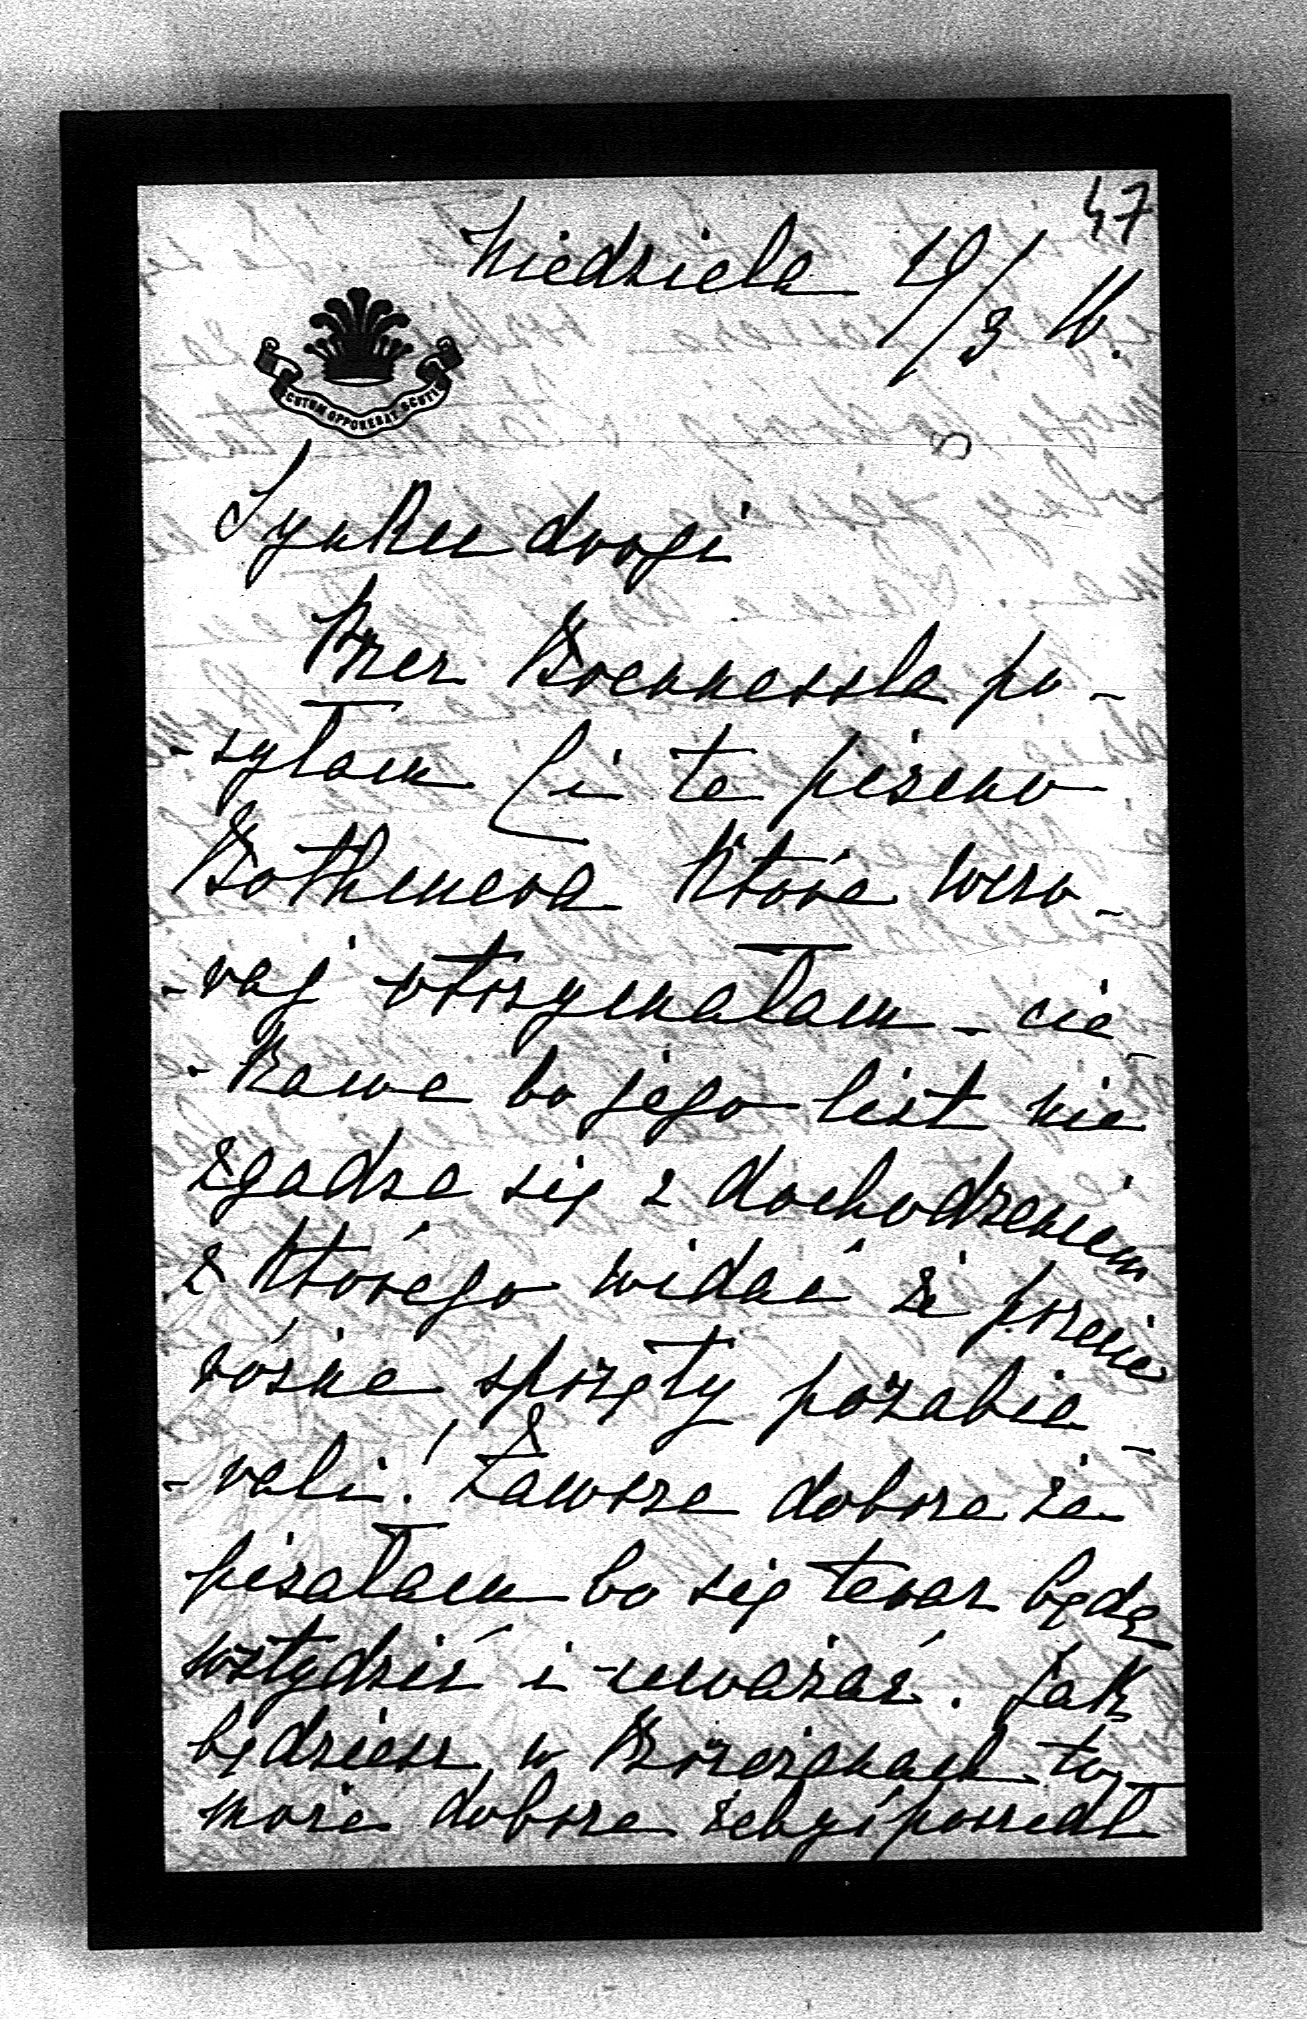 47
Niedziela 19/3 16.
SCUTUM OPPONEBAT SCUTIS
Synku drogi
Przez Broennessla po-
-syłam Ci te pismo
Bothmera które wczo-
-raj otrzymałam - cie-
-kawe bo jego list nie
zgadza się z dochodzeniem
z którego widać że przecie
różne sprzęty pozabie-
-rali! Zawsze dobrze że
pisałam bo się teraz będą
wstydzić i uważać. Jak
będziesz w Brzeżanach to
może dobrze żebyś poszedł